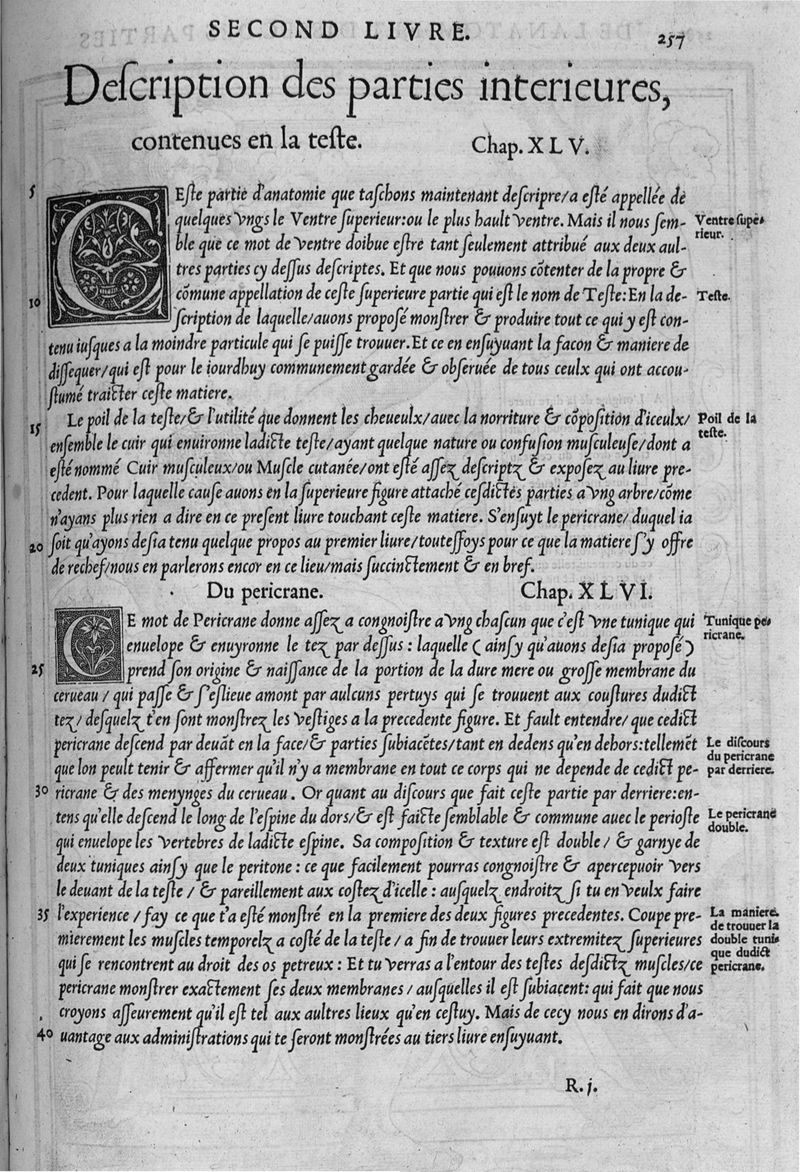 SECOND LIVRE.
257
Deſcription des parties interieures,
contenues en la teſte. Chap. XLV.
5
CEſte partie d'anatomie que taſchons maintenant deſcripre/a eſté appellée de
quelques vngs le Ventre ſuperieur:ou le plus hault Ventre. Mais il nous ſem-
Ventre ſupe-
rieur.
ble que ce mot de Ventre doibue eſtre tant ſeulement attribué aux deux aul-
tres parties cy deſſus deſcriptes. Et que nous pouuons cõtenter de la propre &
10
cõmune appellation de ceſte ſuperieure partie qui eſt le nom de Teſte:En la de-
Teſte.
ſcription de laquelle/auons propoſé monſtrer & produire tout ce qui y eſt con-
tenu iuſques a la moindre particule qui ſe puiſſe trouuer.Et ce en enſuyuant la facon & maniere de
diſſequer/qui eſt pour le iourdhuy communement gardée & obſeruée de tous ceulx qui ont accou-
ſtumé traicter ceſte matiere.
15
Le poil de la teſte/& l'utilité que donnent les cheueulx/auec la norriture & cõpoſition d'iceulx/
Poil de la
teſte.
enſemble le cuir qui enuironne ladicte teſte/ayant quelque nature ou confuſion muſculeuſe/dont a
eſté nommé Cuir muſculeux/ou Muſcle cutanée/ont eſté aſſez deſcriptz & expoſez au liure pre-
cedent. Pour laquelle cauſe auons en la ſuperieure figure attaché ceſdictes parties a vng arbre/cõme
n'ayans plus rien a dire en ce preſent liure touchant ceſte matiere. S'enſuyt le pericrane/ duquel ia
20
ſoit qu'ayons deſia tenu quelque propos au premier liure/touteſfoys pour ce que la matiere ſ'y offre
de rechef/nous en parlerons encor en ce lieu/mais ſuccinctement & en bref.
Du pericrane. Chap. XLVI.
CE mot de Pericrane donne aſſez a congnoiſtre a vng chaſcun que c'eſt vne tunique qui
Tunique pe-
ricrane.
enuelope & enuyronne le tez par deſſus : laquelle ( ainſy qu'auons deſia propoſé )
25
prend ſon origine & naiſſance de la portion de la dure mere ou groſſe membrane du
cerueau / qui paſſe & ſ'eſlieue amont par aulcuns pertuys qui ſe trouuent aux couſtures dudict
tez/ deſquelz t'en ſont monſtrez les veſtiges a la precedente figure. Et fault entendre/ que cedict
pericrane deſcend par deuãt en la face/& parties ſubiacẽtes/tant en dedens qu'en dehors:tellemẽt
Le diſcours
du pericrane
par derriere.
que lon peult tenir & affermer qu'il n'y a membrane en tout ce corps qui ne depende de cedict pe-
30
ricrane & des menynges du cerueau. Or quant au diſcours que fait ceſte partie par derriere:en-
tens qu'elle deſcend le long de l'eſpine du dors/& eſt faicte ſemblable & commune auec le perioſte
Le pericrane
double.
qui enuelope les vertebres de ladicte eſpine. Sa compoſition & texture eſt double / & garnye de
deux tuniques ainſy que le peritone : ce que facilement pourras congnoiſtre & apercepuoir vers
le deuant de la teſte / & pareillement aux coſtez d'icelle : auſquelz endroitz ſi tu en veulx faire
35
l'experience / fay ce que t'a eſté monſtré en la premiere des deux figures precedentes. Coupe pre-
La maniere
de trouuer la
double tuni-
que dudict
pericrane.
mierement les muſcles temporelz a coſté de la teſte / a fin de trouuer leurs extremitez ſuperieures
qui ſe rencontrent au droit des os petreux : Et tu verras a l'entour des teſtes deſdictz muſcles/ce
pericrane monſtrer exactement ſes deux membranes / auſquelles il eſt ſubiacent: qui fait que nous
croyons aſſeurement qu'il eſt tel aux aultres lieux qu'en ceſtuy. Mais de cecy nous en dirons d'a-
40
uantage aux adminiſtrations qui te ſeront monſtrées au tiers liure enſuyuant.
R.j.